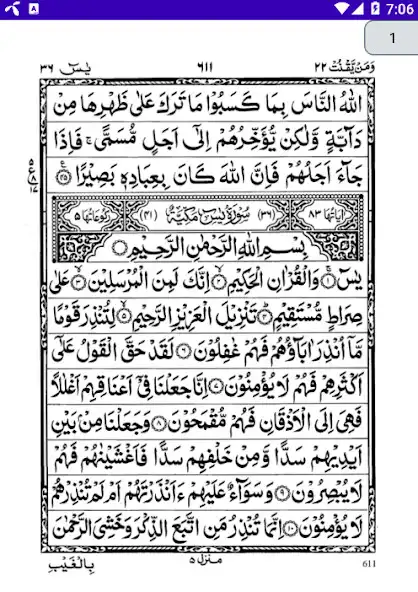 7:06
1
وَمَنْ يَّقْنُتْ ٢٢
٦١١
يٰسٓ ٣٦
اللّٰهُ النَّاسَ بِمَا كَسَبُوْا مَا تَرَكَ عَلٰى ظَهْرِهَا مِنْ
دَآبَّةٍ وَّلٰكِنْ يُّؤَخِّرُهُمْ اِلٰٓى اَجَلٍ مُّسَمًّى ۚ فَاِذَا
جَآءَ اَجَلُهُمْ فَاِنَّ اللّٰهَ كَانَ بِعِبَادِهٖ بَصِيْرًا ۝٤٥
اٰيَاتُهَا ٨٣ (٣٦) سُوْرَةُ يٰسٓ مَكِّيَّةٌ (٤١) رُكُوْعَاتُهَا ٥
بِسْمِ اللّٰهِ الرَّحْمٰنِ الرَّحِيْمِ ۝
يٰسٓ ۝١ وَالْقُرْاٰنِ الْحَكِيْمِ ۝٢ اِنَّكَ لَمِنَ الْمُرْسَلِيْنَ ۝٣ عَلٰى
صِرَاطٍ مُّسْتَقِيْمٍ ۝٤ تَنْزِيْلَ الْعَزِيْزِ الرَّحِيْمِ ۝٥ لِتُنْذِرَ قَوْمًا
مَّآ اُنْذِرَ اٰبَآؤُهُمْ فَهُمْ غٰفِلُوْنَ ۝٦ لَقَدْ حَقَّ الْقَوْلُ عَلٰٓى
اَكْثَرِهِمْ فَهُمْ لَا يُؤْمِنُوْنَ ۝٧ اِنَّا جَعَلْنَا فِيْٓ اَعْنَاقِهِمْ اَغْلٰلًا
فَهِيَ اِلَى الْاَذْقَانِ فَهُمْ مُّقْمَحُوْنَ ۝٨ وَجَعَلْنَا مِنْۢ بَيْنِ
اَيْدِيْهِمْ سَدًّا وَّمِنْ خَلْفِهِمْ سَدًّا فَاَغْشَيْنٰهُمْ فَهُمْ
لَا يُبْصِرُوْنَ ۝٩ وَسَوَآءٌ عَلَيْهِمْ ءَاَنْذَرْتَهُمْ اَمْ لَمْ تُنْذِرْهُمْ
لَا يُؤْمِنُوْنَ ۝١٠ اِنَّمَا تُنْذِرُ مَنِ اتَّبَعَ الذِّكْرَ وَخَشِيَ الرَّحْمٰنَ
بِالْغَيْبِ
منزل ٥
611